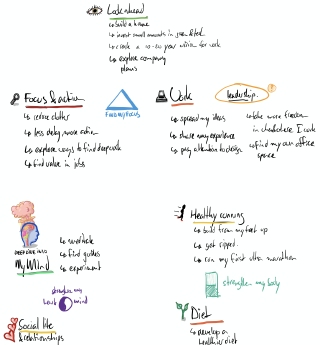 Look ahead
↳ build a house
↳ invest small amounts in
↳ create a 10-20 year vision for work
↳ explore company
plans
Focus & action
↳ reduce clutter
↳ less delay, more action
↳ explore ways to find deep work
↳ find value in jobs
Find my focus
Work
↳ spreading my ideas
↳ share my experience
↳ pay attention to design
leadership
↳ take more freedom
in where I work
↳ find my own office
space
Deep dive into
My Mind
↳ meditate
↳ find guides
↳ experiment
mind
Healthy running
↳ build from my feet up
↳ get ripped
↳ run my first ultra marathon
strengthen my body
Social life
& relationships
Diet
↳ develop a
healthier diet